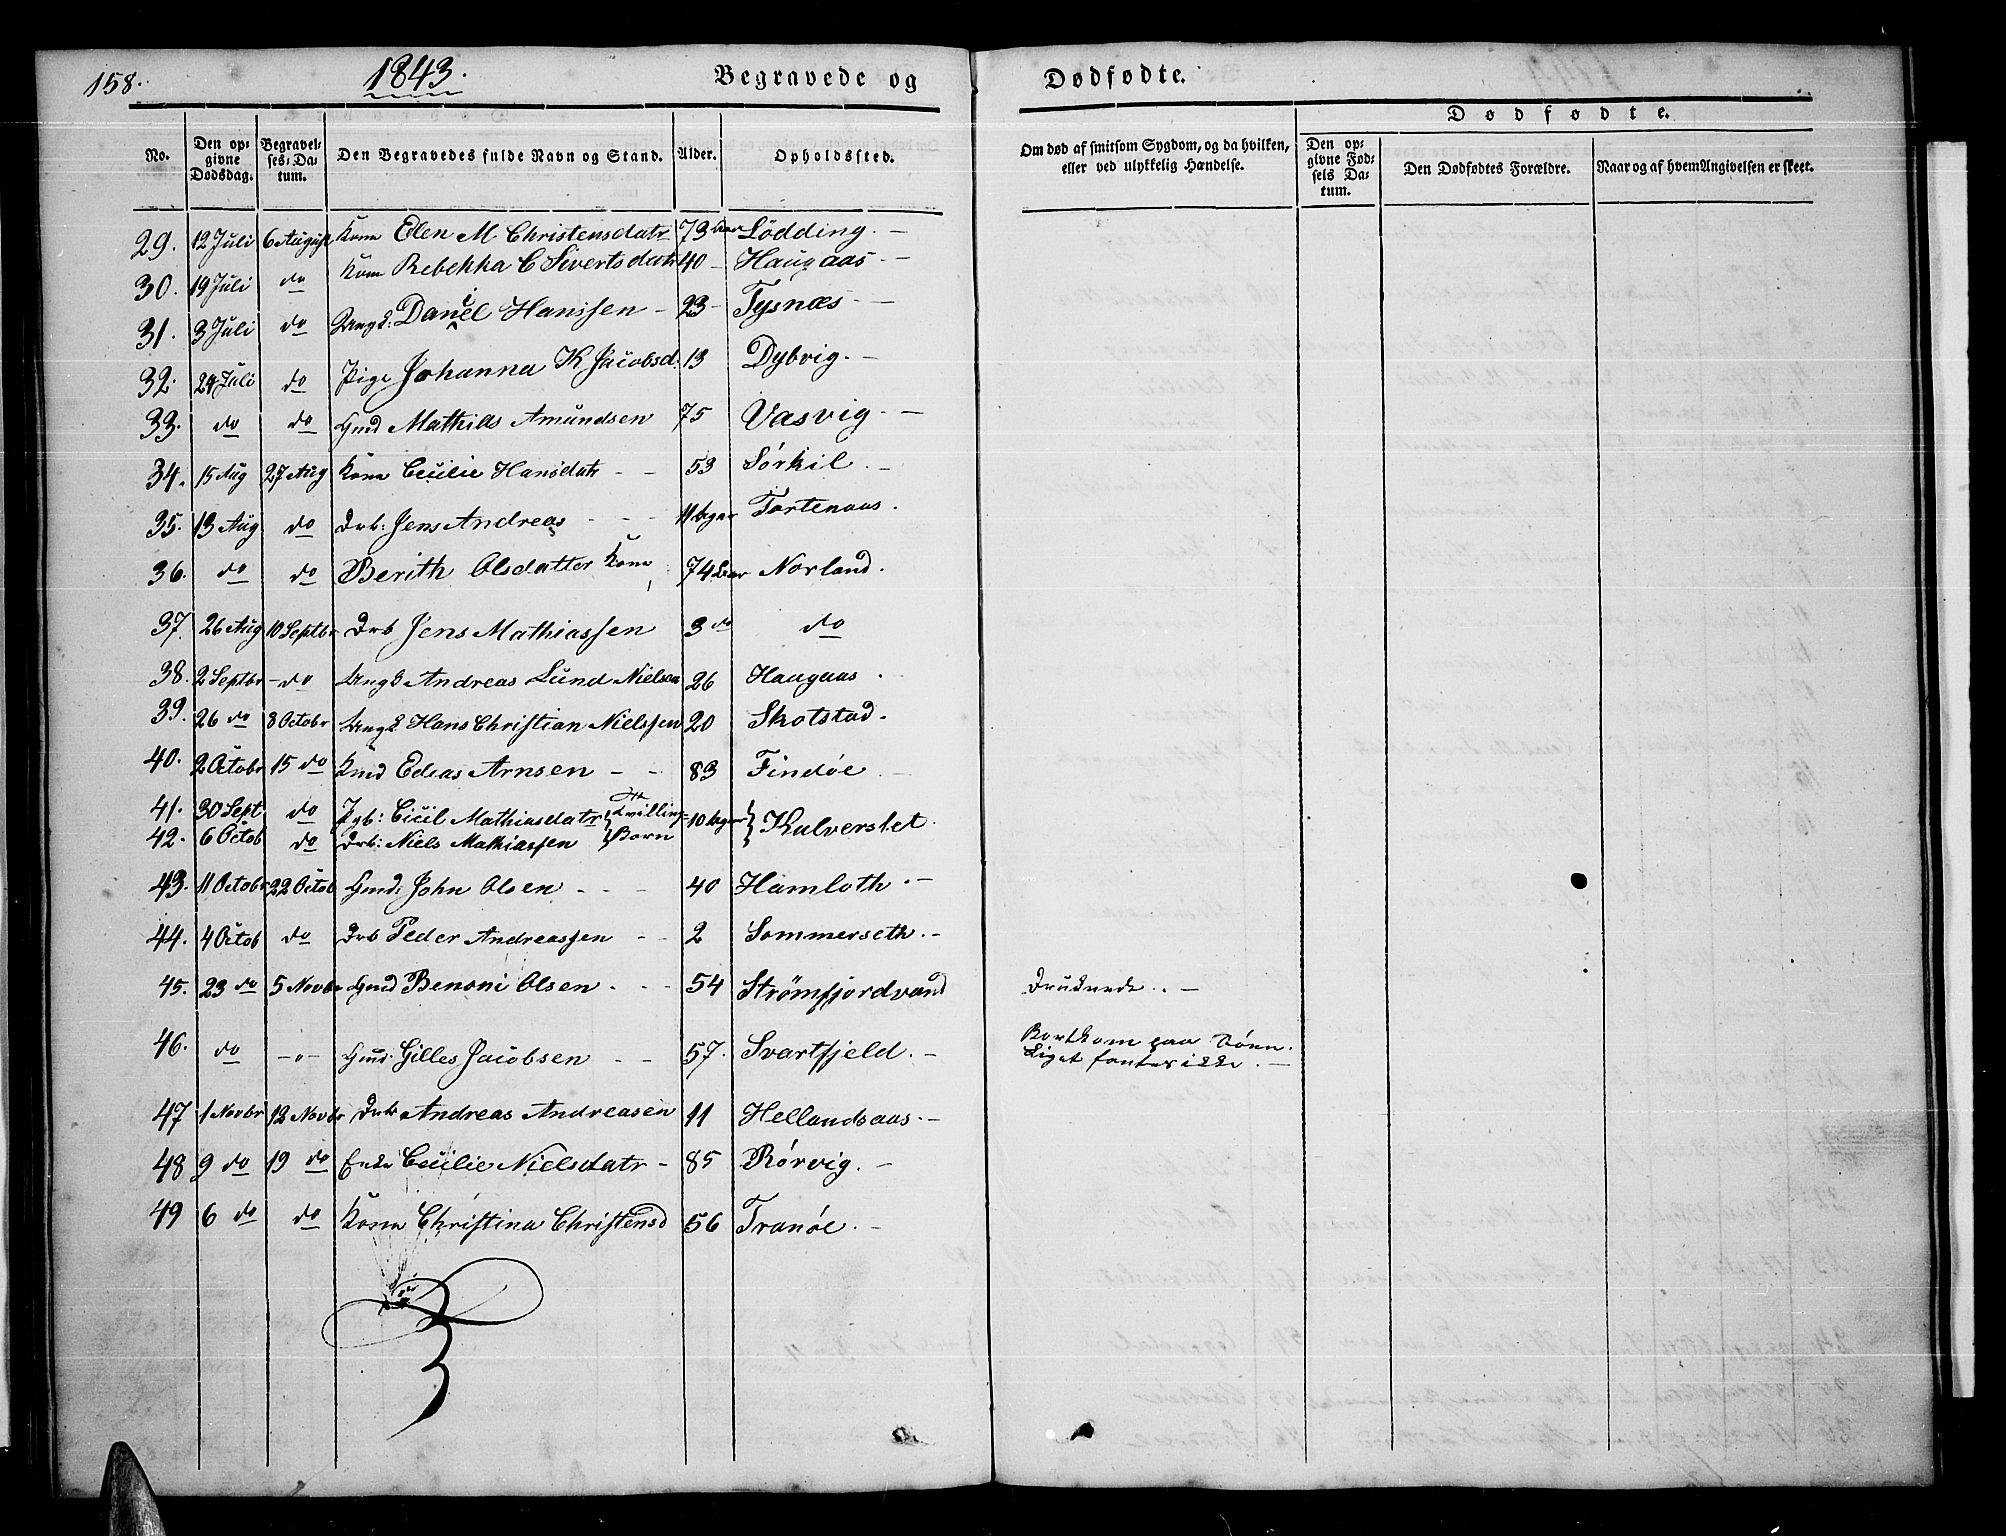 158.
1843.
Begravede og
Dødfødte.
No.
Den op-
givne
Dødsdag.
Begravel-
ses-Da-
tum.
Den Begravedes fulde Navn og Stand.
Alder.
Opholdssted.
Om død af smitsom Sygdom, og da hvilken,
eller ved ulykkelig Hændelse.
Dødfødte.
Den op-
givne Fød-
sels Da-
tum.
Den Dødfødtes Forældre.
Naar og af hvem Angivelsen er skeet.
29. 12 Juli 6 August Kone Elen M Christensdatr 73 Aar Lödding. -
30. 19 Juli do Kone Rebekka C Sivertsdatr 40 - Haugaas -
31. 3 Juli do Ungk: Daniel Hanssen - 23 - Tysnæs -
32. 24 Juli do Pige Johanna K Jacobsd: 13 Dybvig. -
33. do do Gmd Mathias Amundsen 75 Vasvig. -
34. 15 Aug 27 Aug Kone Cecilie Hansdatr - - 53 Sörkil. -
35. 13 Aug do Drb: Jens Andreas - - - 11 Uger Tortenaas.
36. do do Berith Olsdatter Kone 74 Aar Norland.
37. 26 Aug 10 Septbr Drb Jens Mathiassen 3 do do
38. 2 Septbr - do Ungk Andreas Lund Nielsen 26 Haugaas -
39. 26 do 8 Octobr Ungk Hans Christian Nielssen 20 Skotstad.
40. 2 Octobr 15 do Kmd Edias Arnsen - - 83 Findöe -
41. 30 Sept do Pgb: Cicil Mathiasdatr Tvilling- 10 Uger Kalverslet.
42. 6 Octob do Drb: Niels Mathiassen Børn
43. 11 Octobr 22 Octob Gmd: John Olsen - - - 40 Hamloth. -
44. 4 Octob do Drb Peder Andreassen - - 2 Sommerseth. -
45. 23 do 5 Novbr Gmd Benoni Olsen - - - 54 Strömfjordvand Druknede. -
46. do - " - Gmd: Gilles Jacobsen - - 57. Svartfjeld. - Bortkom paa Söen.
Liget fantes ikke. -
47 1 Novbr 12 Novbr Drb Andreas Andreasen 11 Hellandsaas. -
48 9 do 19 do Enke Cecilie Nielsdatr - 85 Rörvig. -
49 6 do do Kone Christina Christensd 56 Tranöe. -